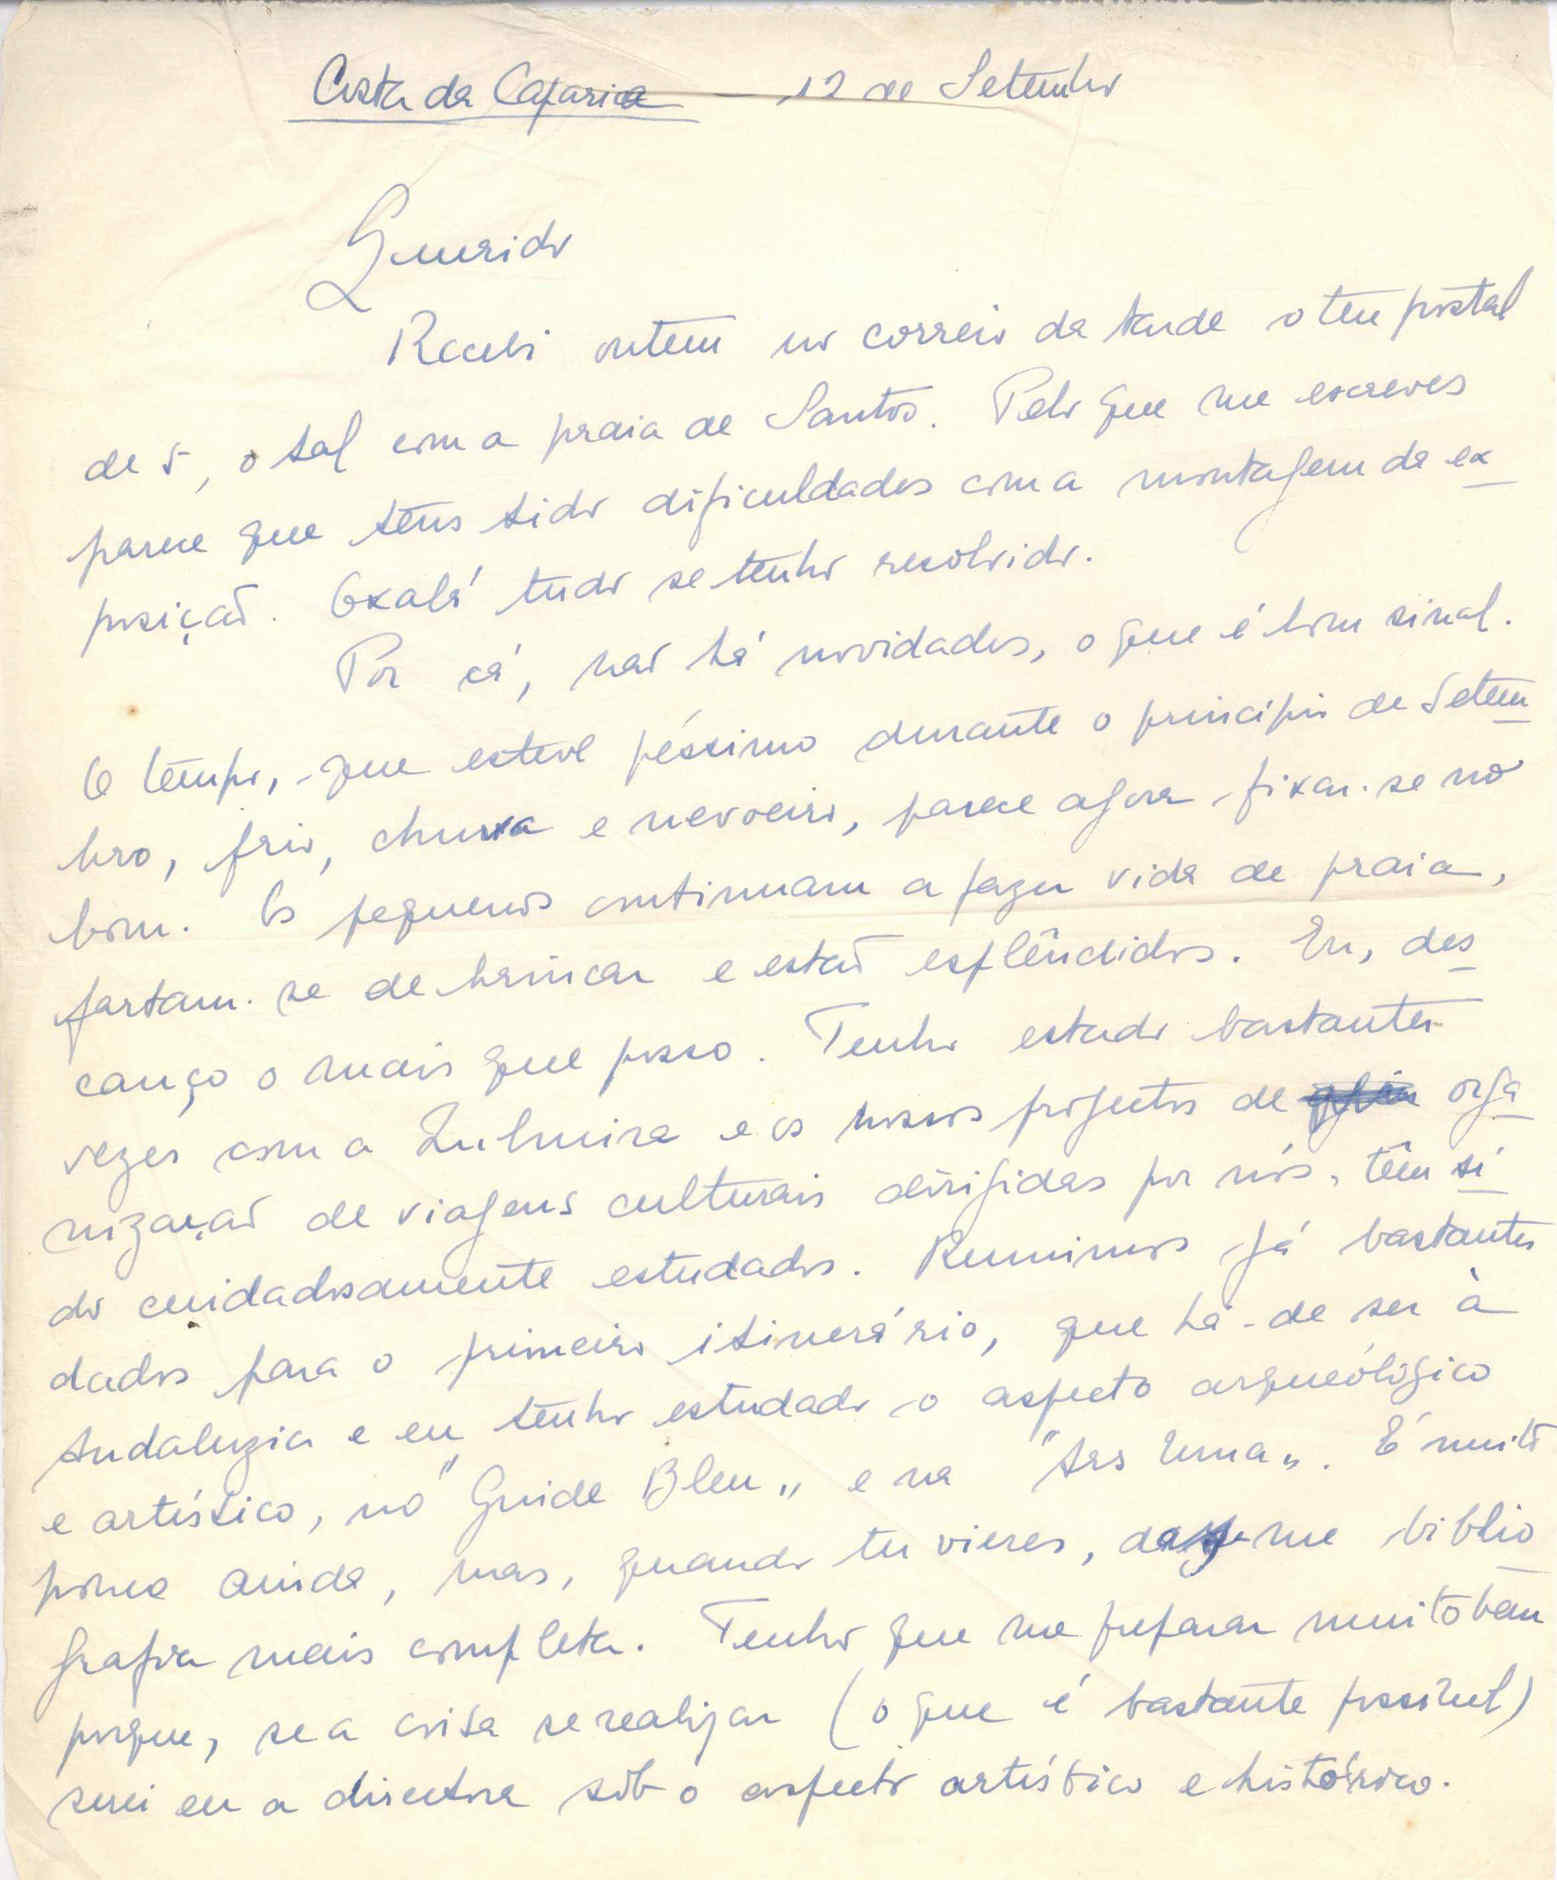 Costa da Caparica — 12 de Setembro
Querido
Recebi ontem no correio da tarde o teu postal
de 5, o tal com a praia de Santos. Pelo que me escreves
parece que tens tido dificuldades com a montagem da ex
posição. Oxalá tudo se tenha resolvido.
Por cá, não há novidades, o que é bom sinal.
O tempo, que esteve péssimo durante o princípio de Setem
bro, frio, chuva e nevoeiro, parece agora fixar-se no
bom. Os pequenos continuam a fazer vida de praia,
fartam-se de brincar e estão esplêndidos. Eu, des
canço o mais que posso. Tenho estado bastantes
vezes com a Zulmira e os nossos projectos de orga
nização de viagens culturais dirigidas por nós, têm si
do cuidadosamente estudados. Reunimos já bastantes
dados para o primeiro itinerário, que há-de ser à
Andaluzia e eu tenho estudado o aspecto arqueólogico
e artístico, no "Guide Bleu" e na "Ars Una". É muito
pouco ainda, mas, quando tu vieres, das-me biblio
grafia mais completa. Tenho que me preparar muito bem
porque, se a coisa se realizar (o que é bastante possível)
serei eu a directora sob o aspecto artístico e histórico.